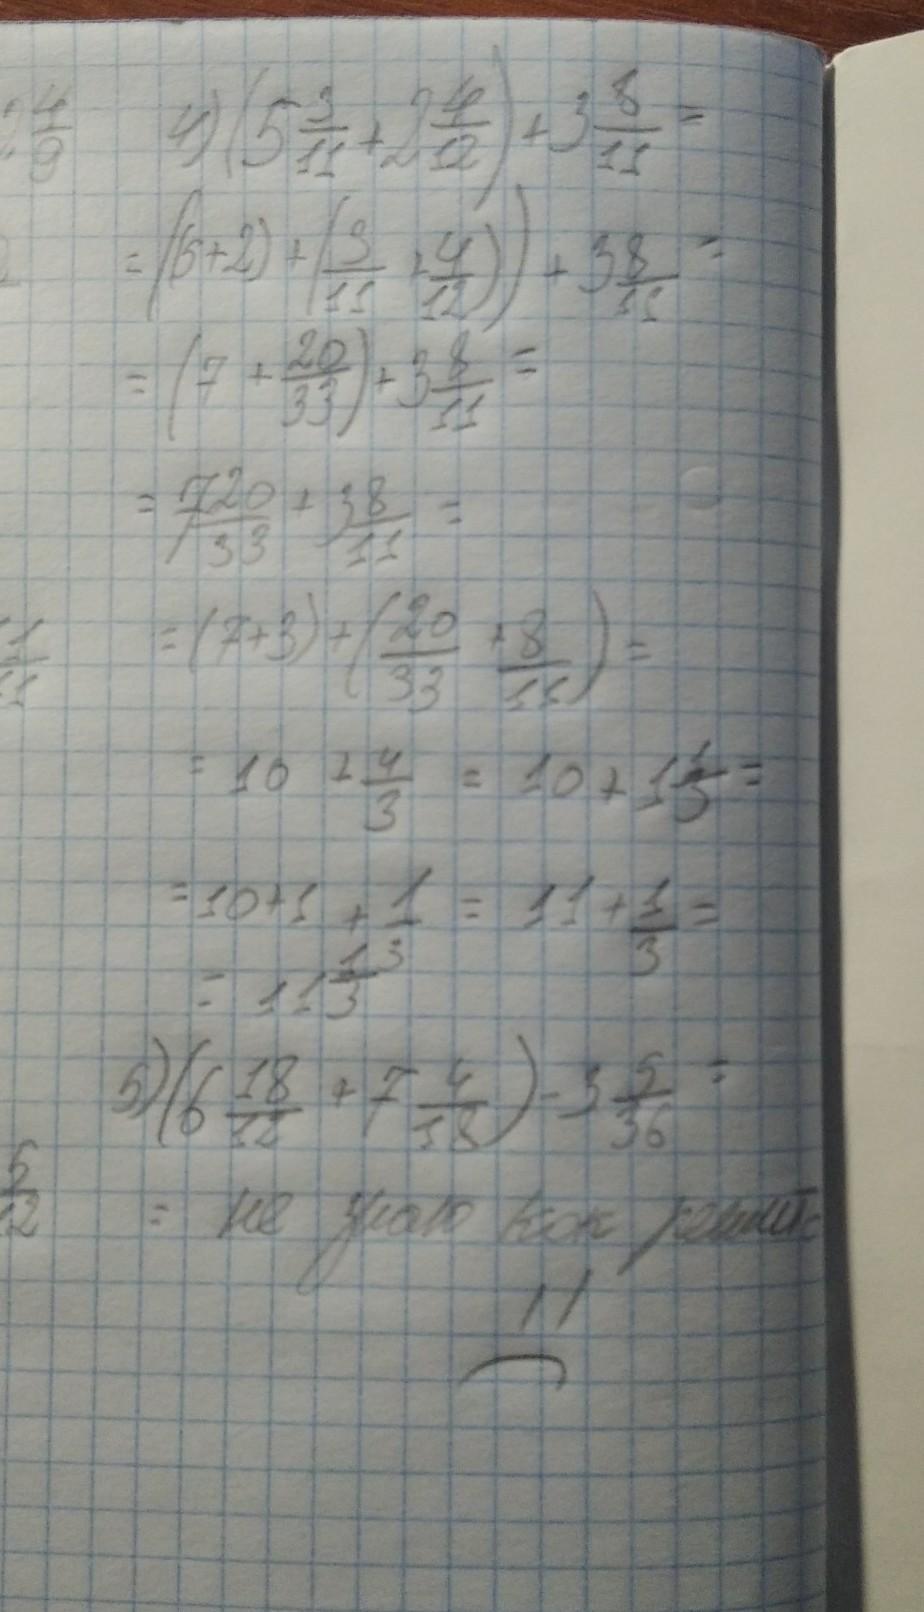 2 4/9
4) (5 3/11 + 2 4/12) + 3 8/11 =
= ((5+2) + (3/11 + 4/12)) + 3 8/11 =
= (7 + 20/33) + 3 8/11 =
= 7 20/33 + 3 8/11 =
= (7+3) + (20/33 + 8/11) =
= 10 + 4/3 = 10 + 1 1/3 =
= 10+1 + 1/3 = 11 + 1/3 =
= 11 1/3
5) (6 18/12 + 7 4/18) - 3 5/36 =
= не знаю как решить